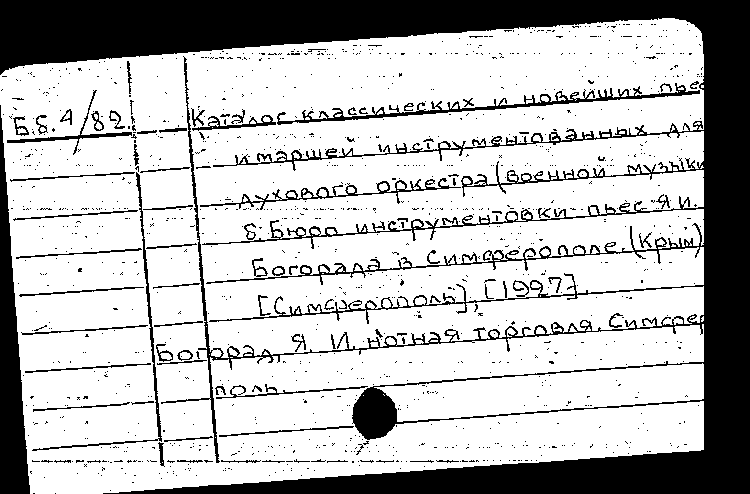 Б.б. 4/82. Каталог классических и новейших пьес
и маршей инструментованных для
духового оркестра (военной музыки
б. Бюро инструментовки пьес Я. И.
Богорада в Симферополе. (Крым)
[Симферополь], [1927].
Богорад, Я. И., нотная торговля. Симферо
поль.